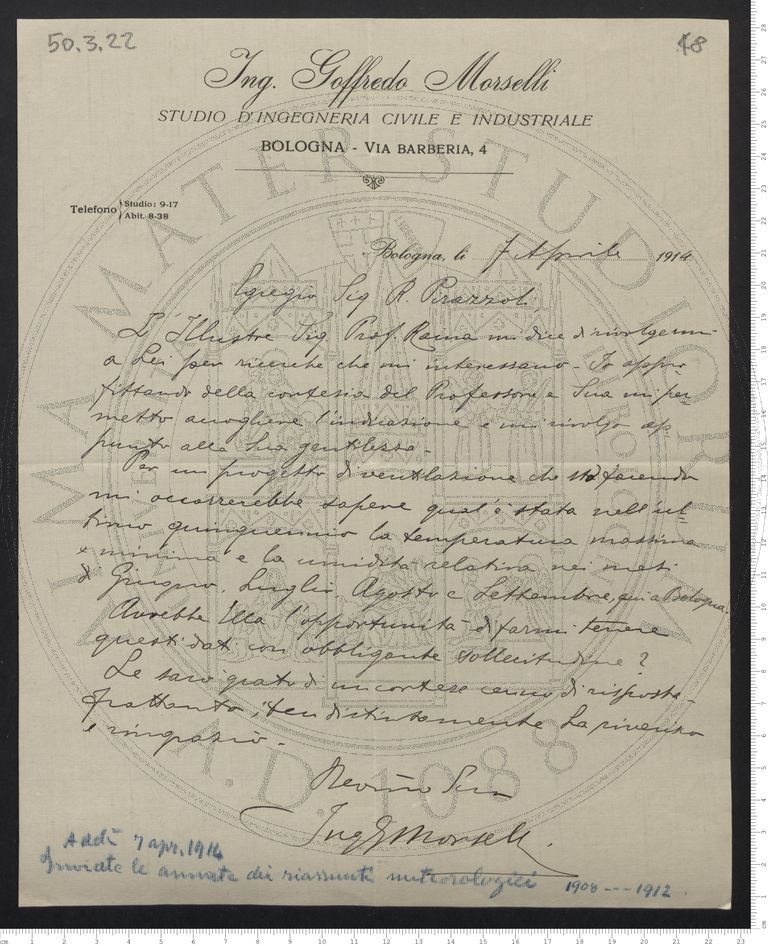 50.3.22
48
Ing. Goffredo Morselli
STUDIO D'INGEGNERIA CIVILE E INDUSTRIALE
BOLOGNA - VIA BARBERIA, 4
Telefono Studio: 9-17
Abit. 8-38
Bologna, li 7 Aprile 1914
Egregio Sig R. Pirazzoli,
L'Illustre Sig. Prof. Raina mi dice di rivolgermi
a Lei per ricerche che mi interessano - Io appro
fittando della cortesia del Professore e Sua mi per
metto accogliere l'indicazione e mi rivolgo ap
punto alla Sua gentilezza.
Per un progetto di ventilazione che sto facendo
mi occorrerebbe sapere qual'è stata nell'ul
timo quinquennio la temperatura massima
e minima e la umidità relativa nei mesi
di Giugno, Luglio, Agosto e Settembre, qui a Bologna.
Avrebbe Ella l'opportunità di farmi tenere
questi dati con obbligante sollecitudine?
Le sarò grato di un cortese cenno di risposta.
frattanto, distintamente La riverisco
e ringrazio.
Devmo Suo
Ing G Morselli.
Addì 7 apr. 1914
Inviate le annate dei riassunti meteorologici 1908 --- 1912.
ALMA MATER STUDIORUM
A.D. 1088